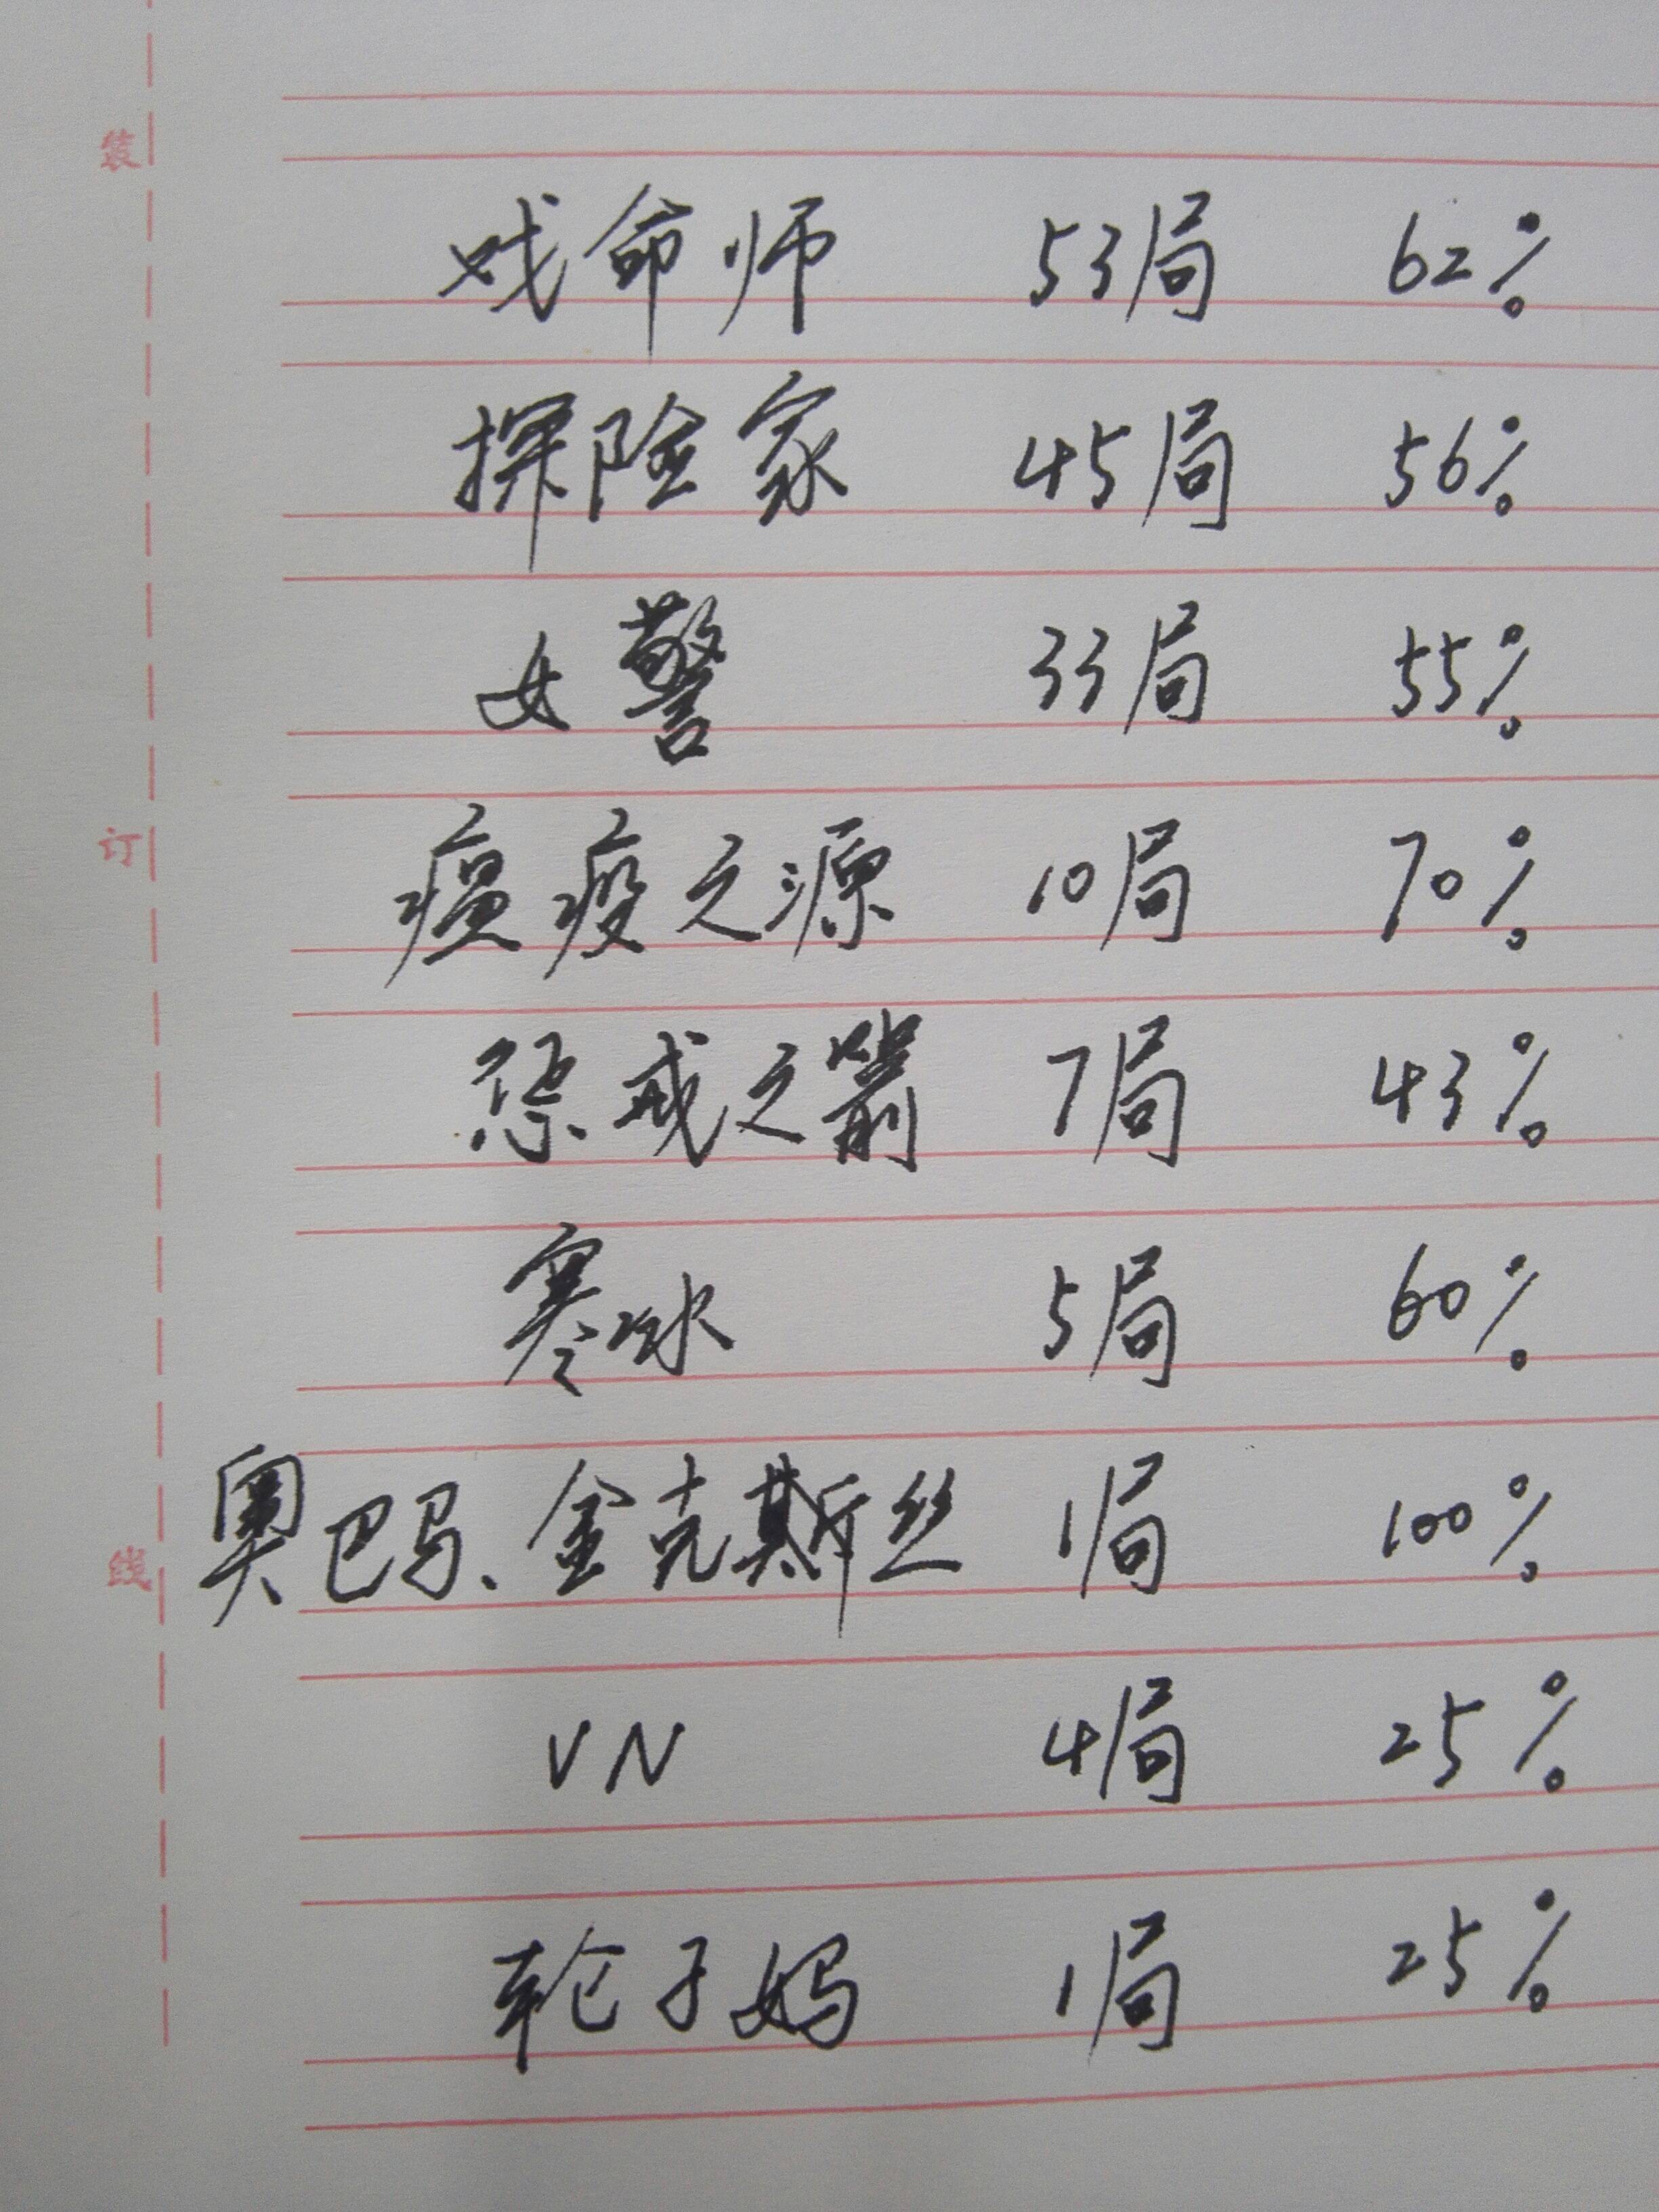 戏命师 53局 62%
探险家 45局 56%
女警 33局 55%
瘟疫之源 10局 70%
惩戒之箭 7局 43%
寒冰 5局 60%
奥巴马、金克斯丝 1局 100%
VN 4局 25%
轮子妈 1局 25%
装
订
线